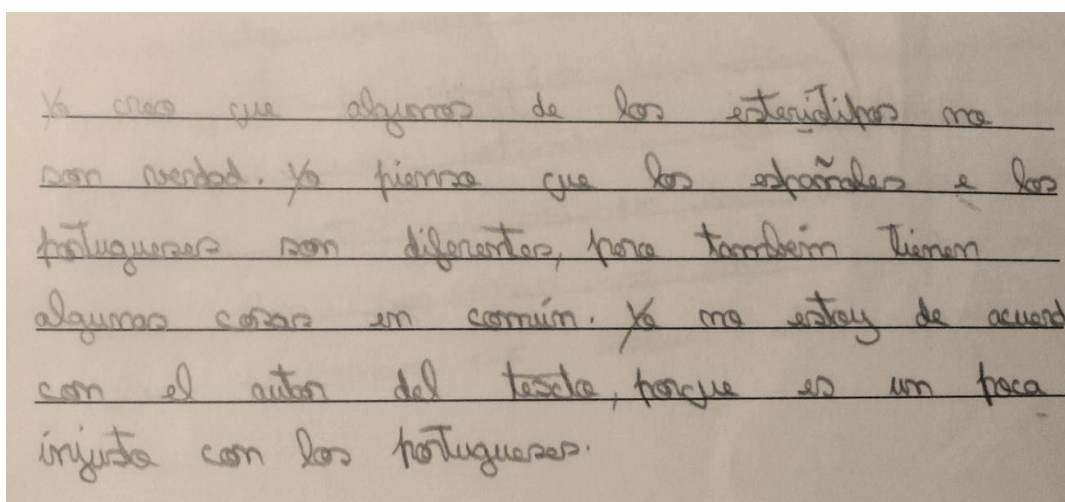 Yo creo que algunos de los esteriotipos no
son verdad. Yo pienso que los españoles e los
portugueses son diferentes, pero tambein tienen
algunas cosas en común. Yo no estoy de acuerd
con el autor del texto, porque es un poco
injusto con los portugueses.